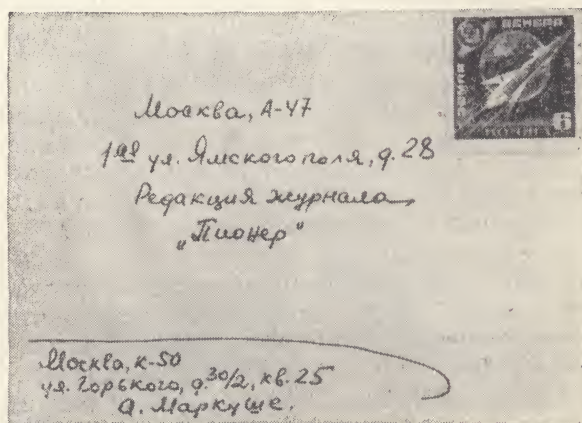 Москва, А-47
1ая ул. Ямского поля, д. 28
Редакция журнала
„Пионер"
6
Москва, К-50
ул. Горького, д. 30/2, кв. 25
А. Маркуше.